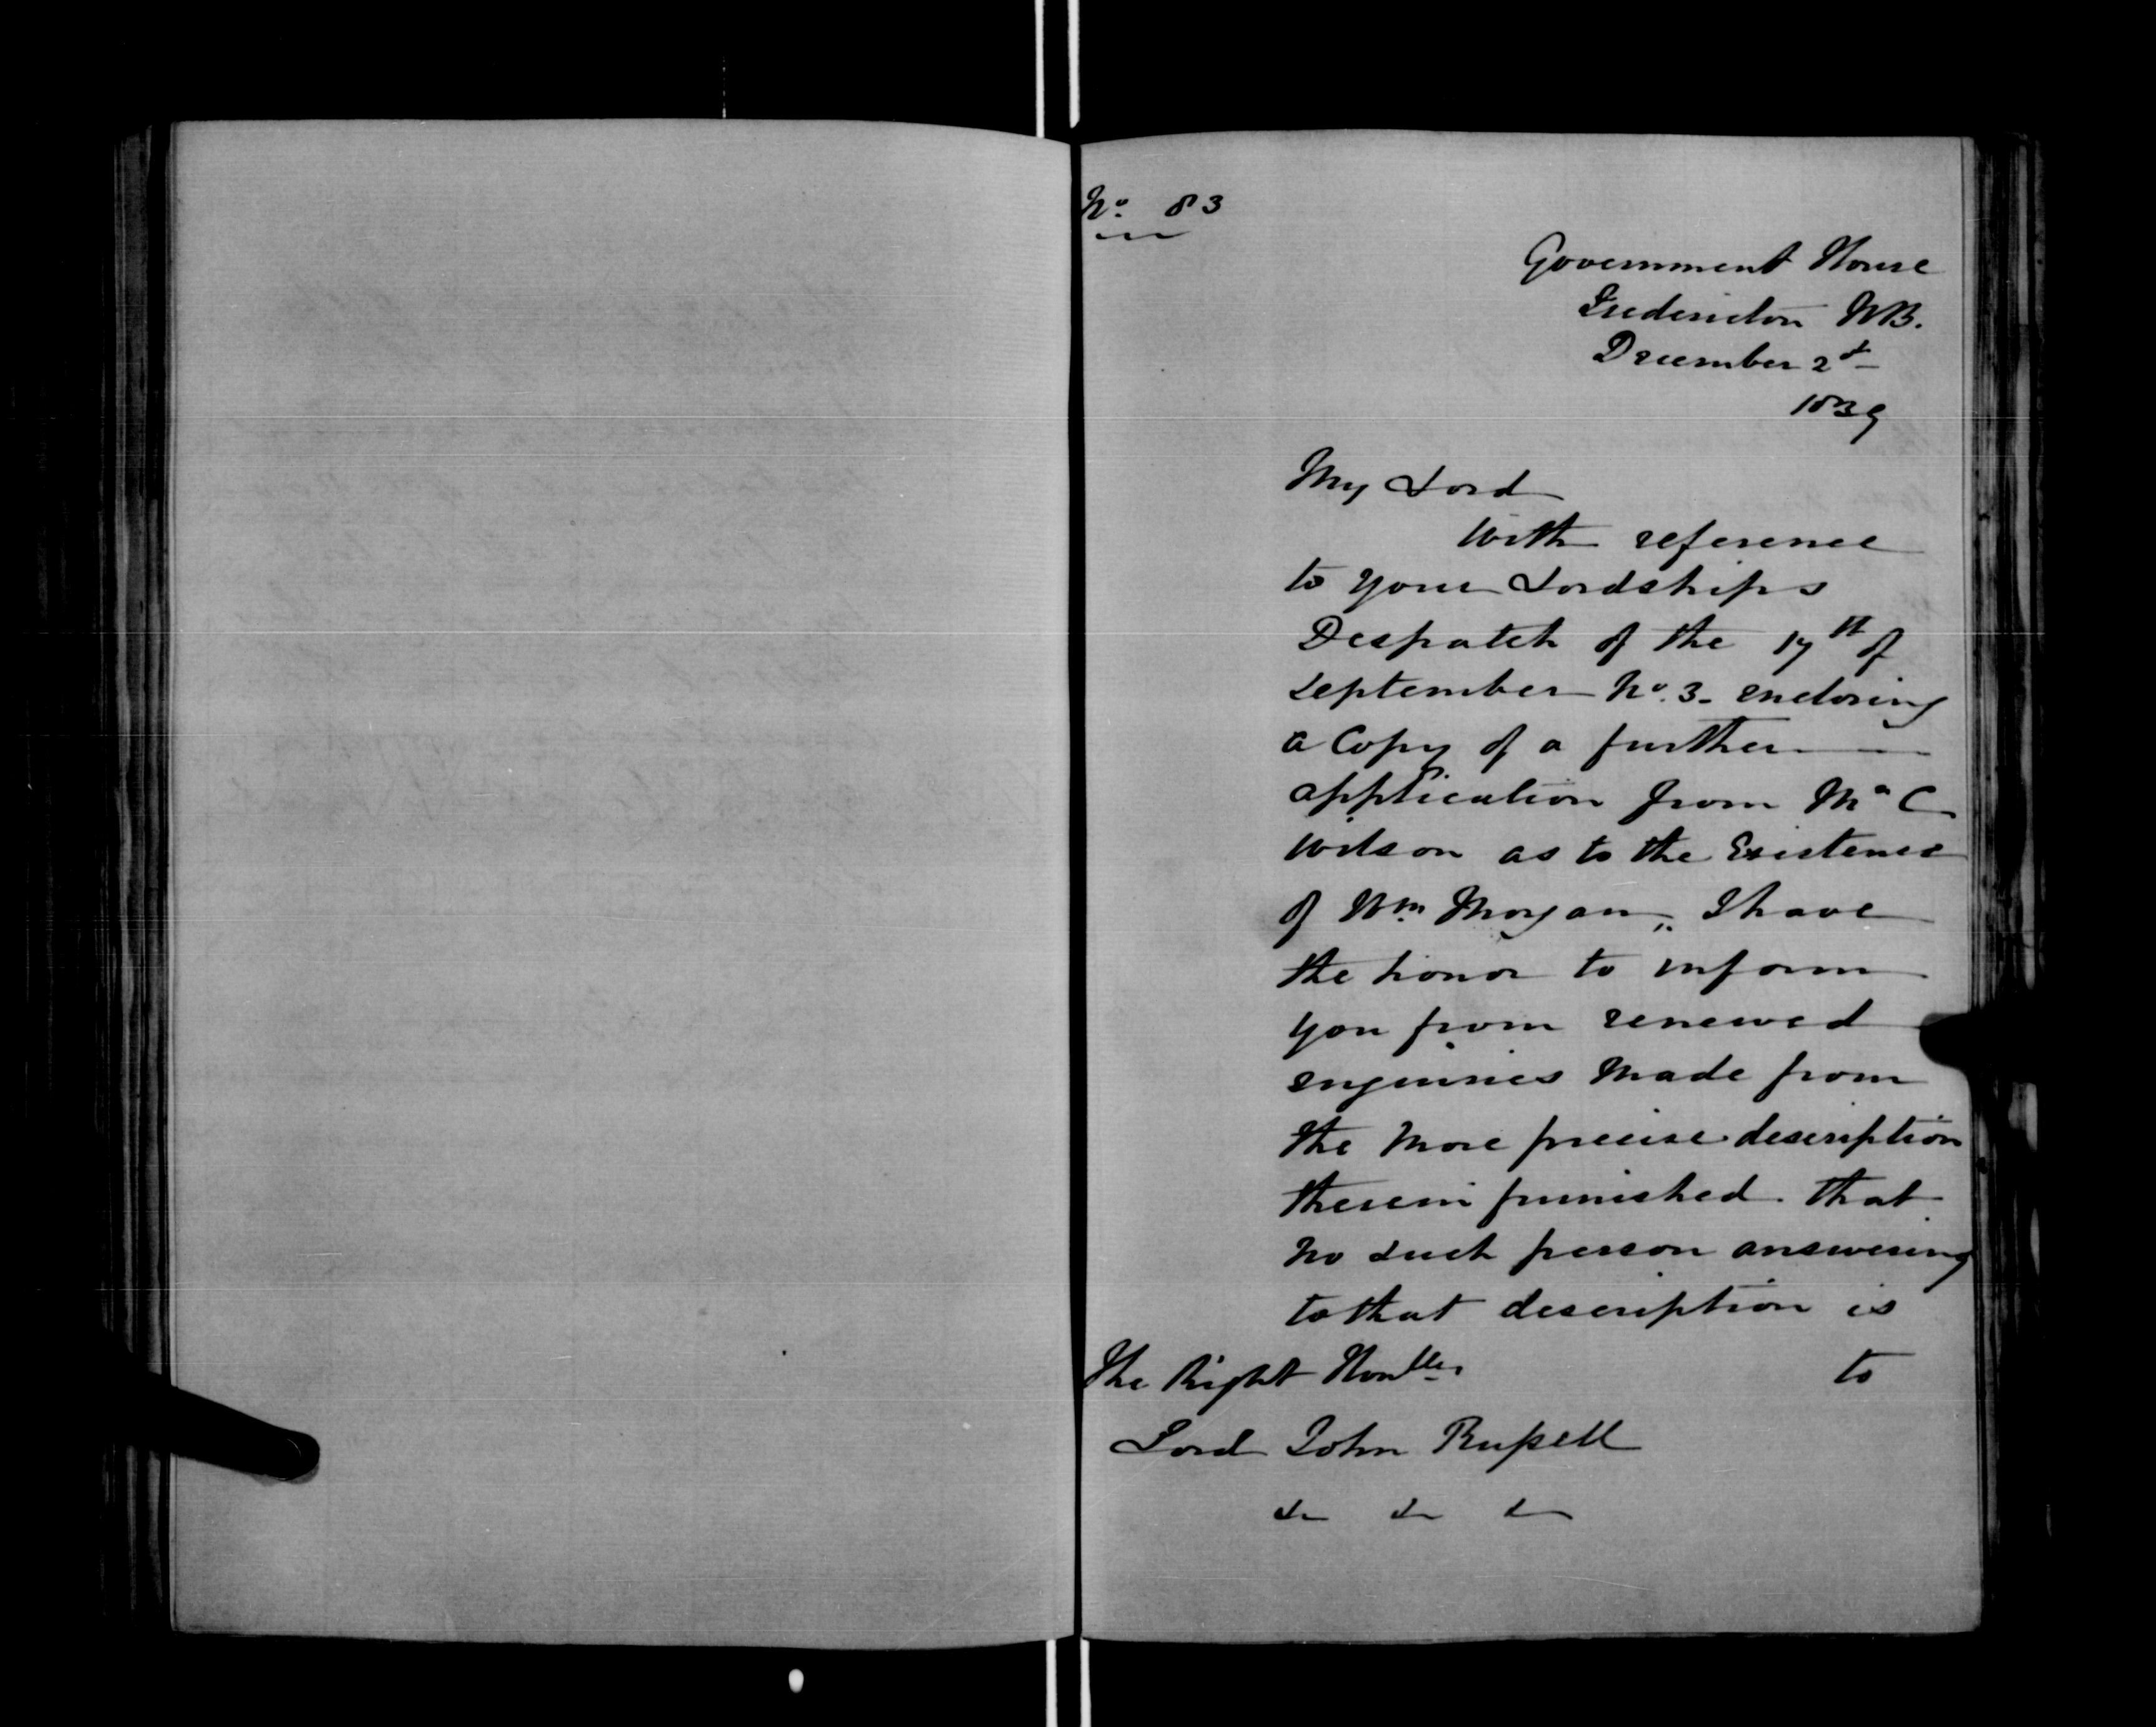 No. 83
Government House
Fredericton NB.
December 2d
1839
My Lord
With reference
to your Lordships
Despatch of the 17th of
September No. 3. enclosing
a Copy of a further
application from Mr C
Wilson as to the Existence
of Wm. Morgan, I have
the honor to inform
you from renewed
enquiries made from
the more precise description
therein furnished. that
no such person answering
to that description is
to
The Right Honble.
Lord John Russell
&c &c &c